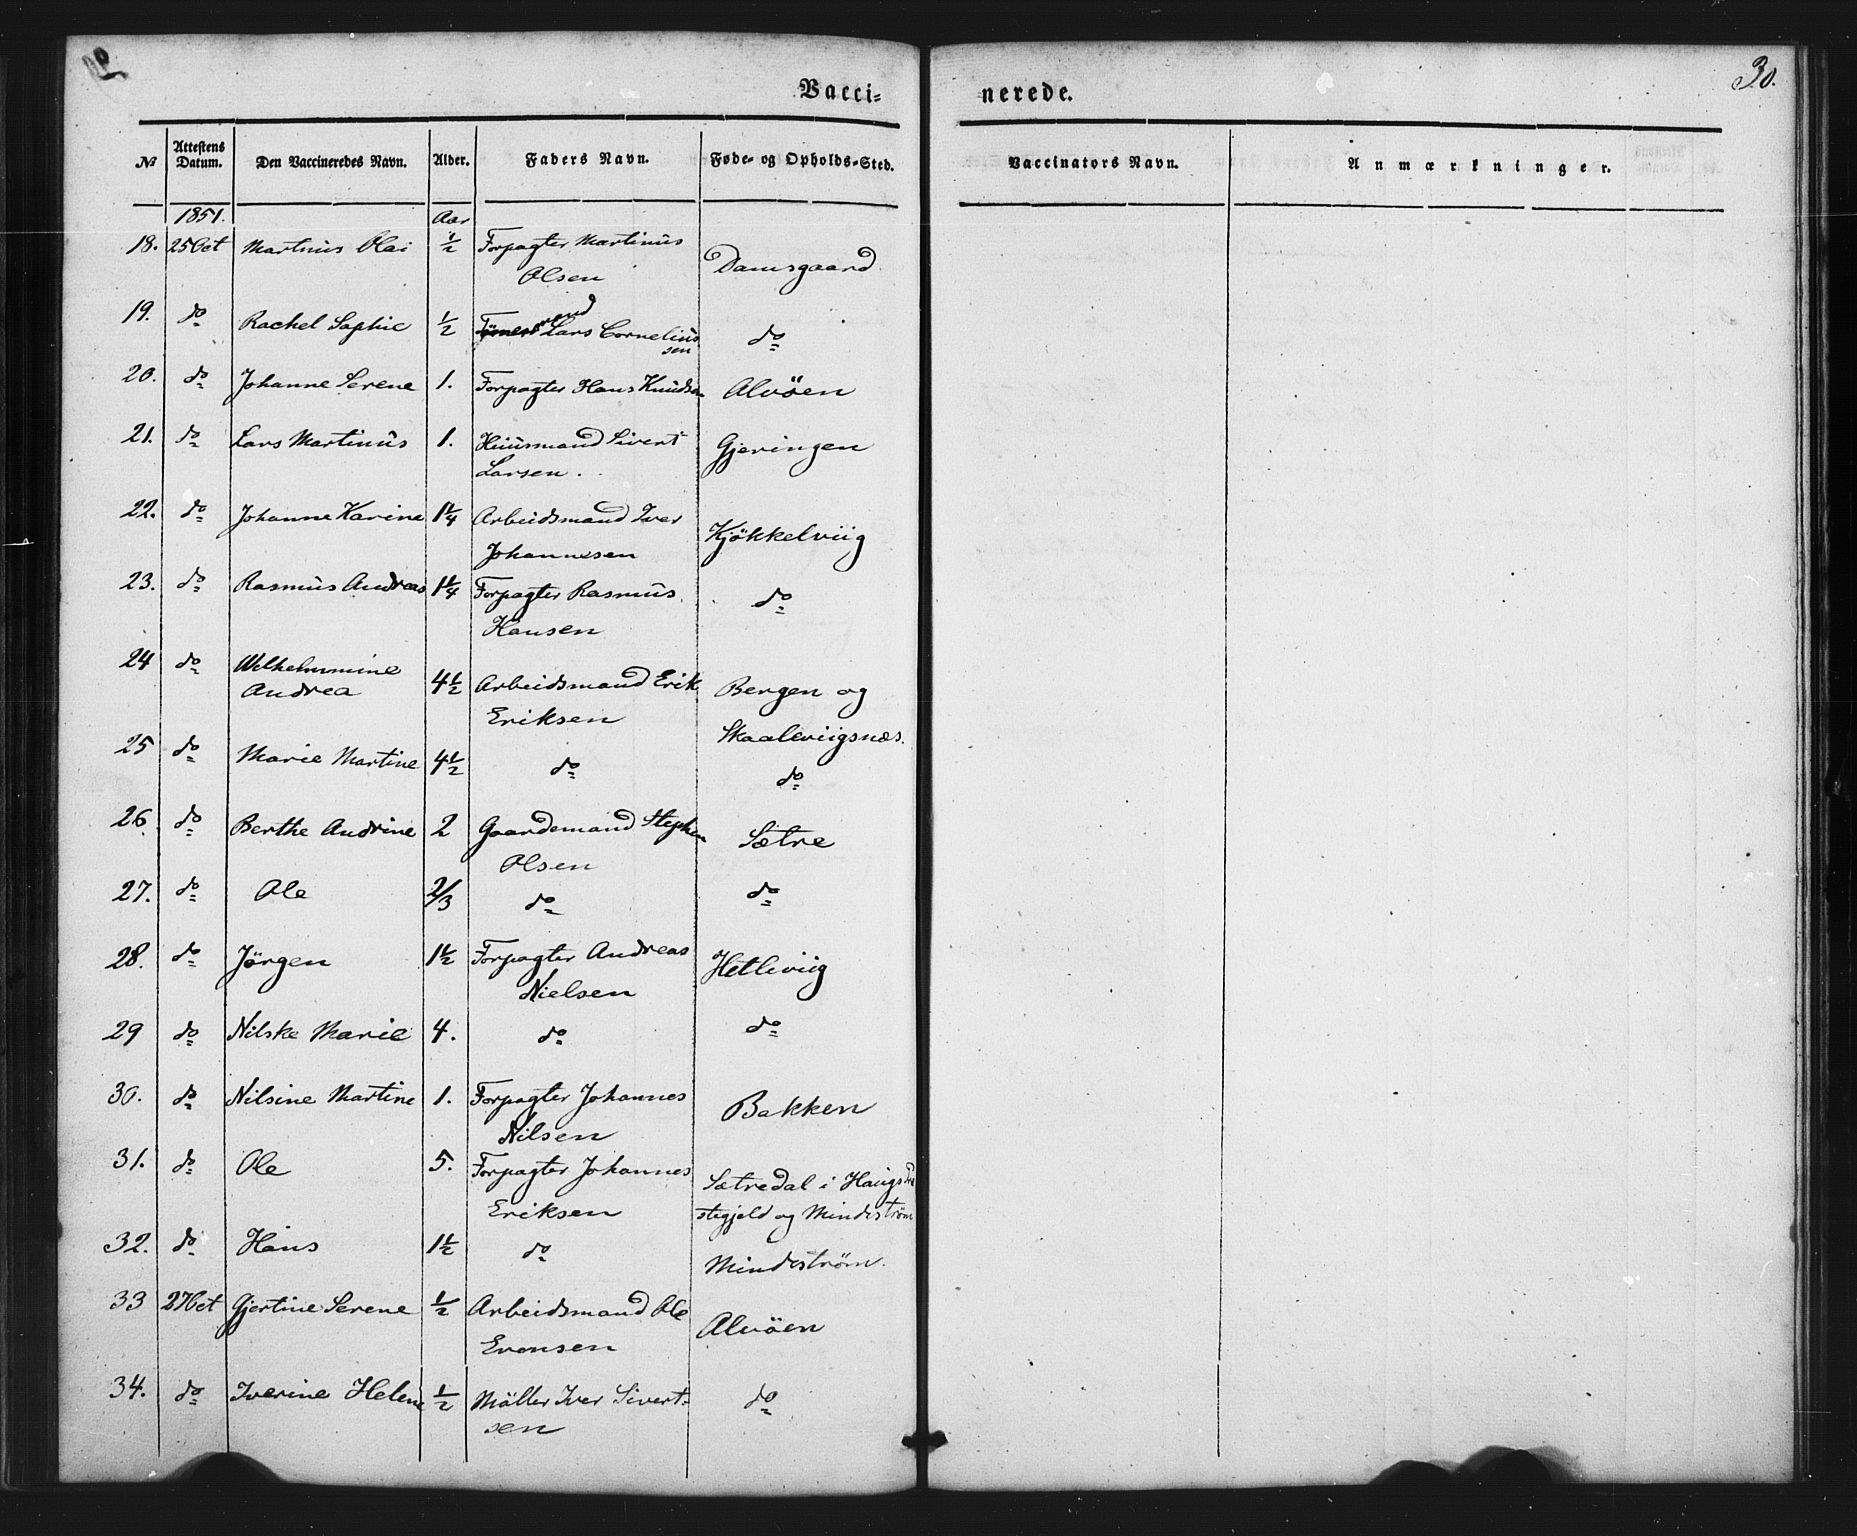 Vacci= nerede. 30.
№ Attestens Datum. Den Vaccineredes Navn. Alder. Faders Navn. Føde- og Opholds-Sted. Vaccinators Navn. Anmærkninger.
1851. Aar
18. 25 Oct Martinus Olai ½ Forpagter Martinus
Olsen Damsgaard
19. do Rachel Sophie ½ Lars Cornelius
sen do
20. do Johanne Serene 1. Forpagter Hans Knudsen Alvöen
21. do Lars Martinus 1. Huusmand Sivert
Larsen. Gjeringen
22. do Johanne Karine 1¼ Arbeidsmand Iver
Johannesen Kjökkelviig
23. do Rasmus Andreas 1¼ Forpagter Rasmus
Hansen do
24 do Wilhelmmine
Andrea 4½ Arbeidsmand Erik
Eriksen Bergen og
Skaaleviigsnæs.
25 do Marie Martine 4½ do do
26. do Berthe Andrine 2 Gaardemand Stephen
Olsen Sætre
27. do Ole 2/3 do do
28. do Jörgen 1½ Forpagter Andreas
Nielsen Hetleviig
29 do Nilske Marie 4. do do
30. do Nilsine Martine 1. Forpagter Johannes
Nilsen Bakken
31. do Ole 5. Forpagter Johannes
Eriksen Sætredal i Haugs Præ
stegjeld og Mindeström
32. do Hans 1½ do Mindeström.
33 27 Oct Gjertine Serene ½ Arbeidsmand Ole
Evensen Alvöen
34. do Iverine Helene ½ Möller Iver Sivert-
sen do